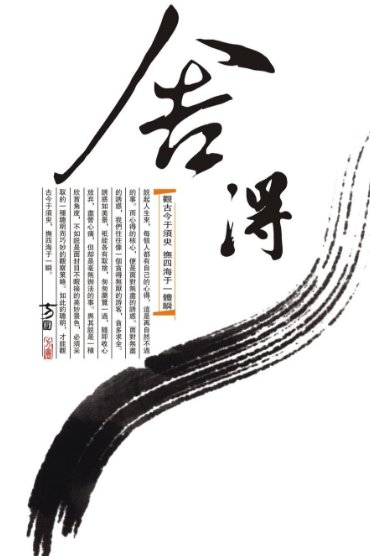 舍得
觀古今于須臾 撫四海于一體瞬
說起人生來,每個人都有自己的心得,這是再自然不過
的事。而心得的核心,便是面對無盡的誘惑。面對無盡
的誘惑,我們往往像一個貪得無厭的游客,貪多求全。
誘惑如美景,祇能各有取捨,匆匆瀏覽一過,隨即收心
放弃,盡管心痛,但却是毫無辦法的事。與其說是一種
欣賞角度,不如說是面封目不暇接的美妙景色,必須采
取的一種聰明而巧妙的觀察策略。知此的聰明,才能觀
古今于須臾,撫四海于一瞬。
方圓